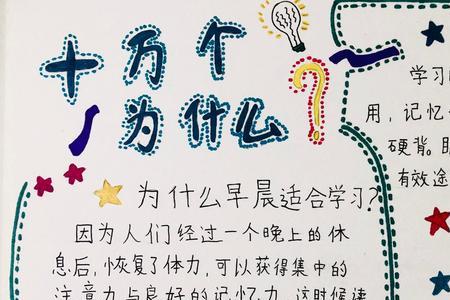 十万个
为什么?
为什么早晨适合学习?
因为人们经过一个晚上的休
息后,恢复了体力,可以获得集中的
注意力与良好的记忆力,这时候读
学习的
用,记忆
硬背。
有效途